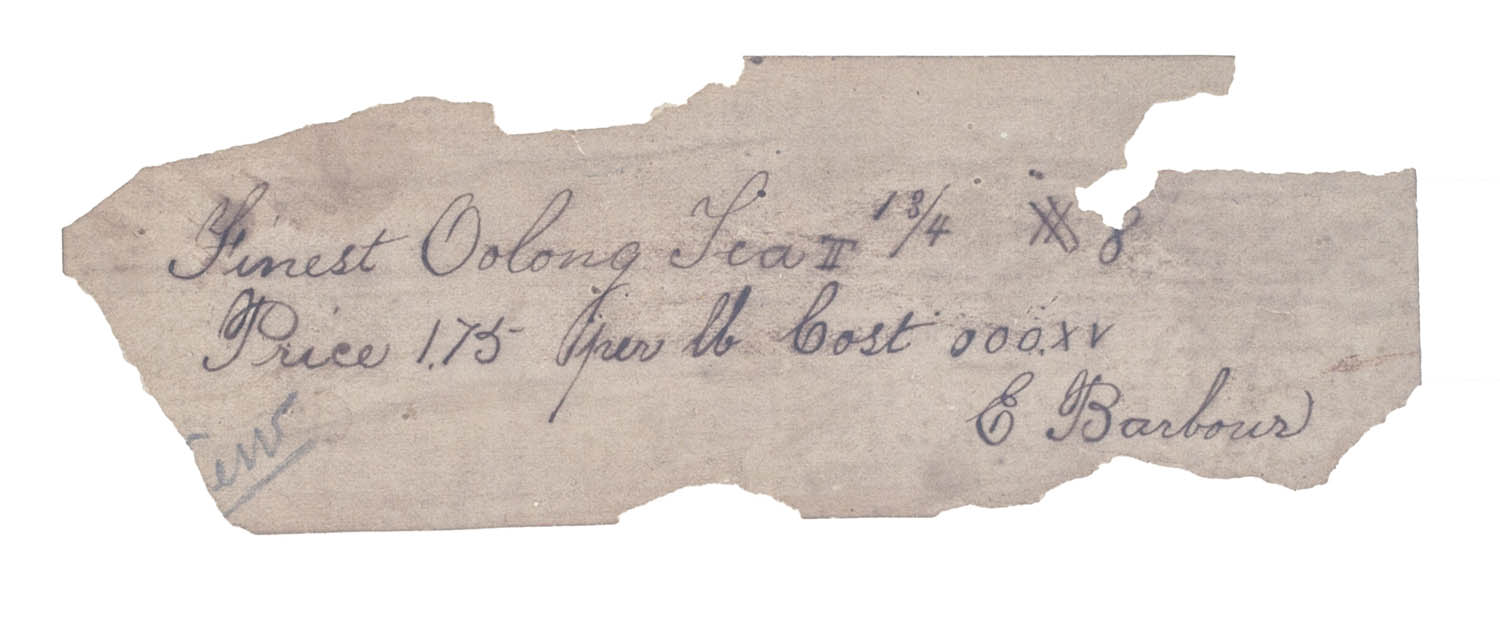 Finest Oolong Tea II 1 3/4 XX 8
Price 1.75 per lb Cost 000.XV
E Barbour